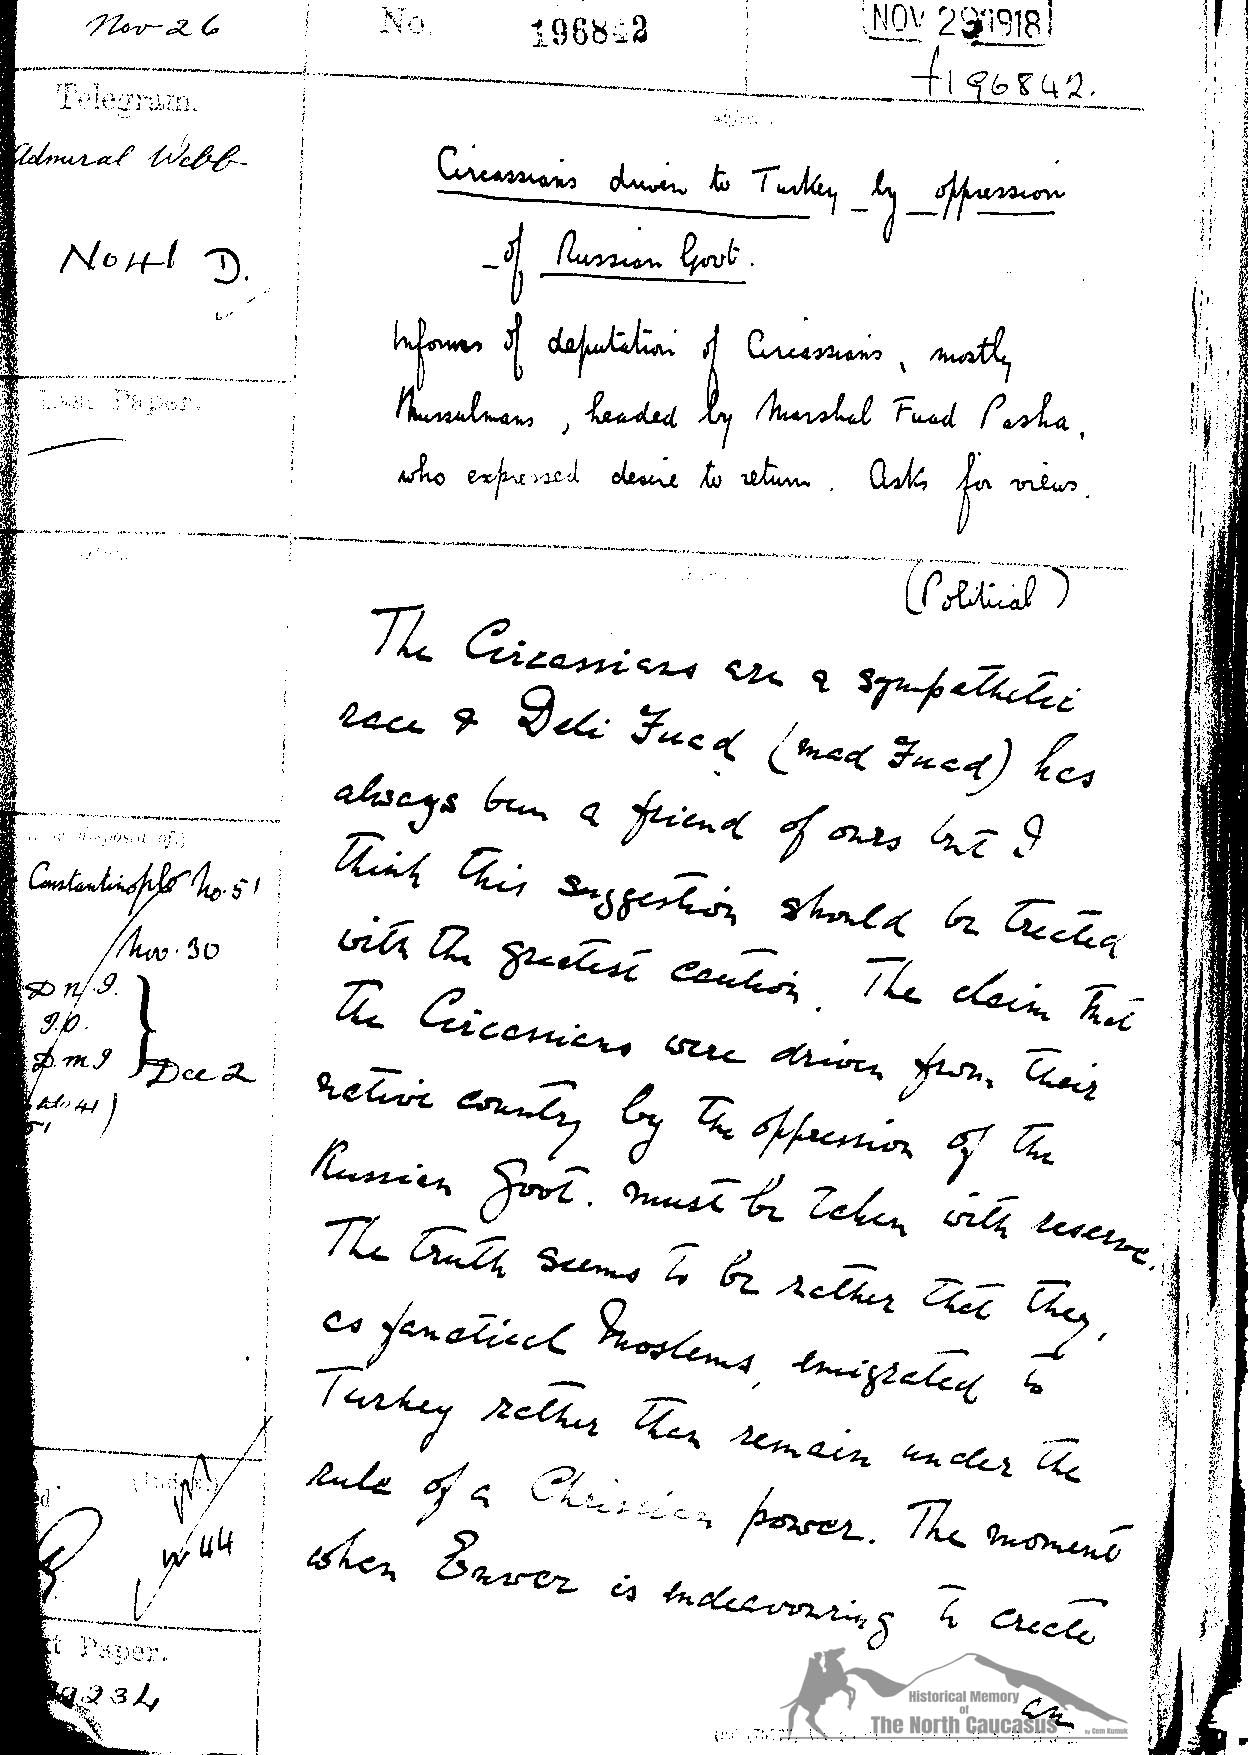 Nov 26
No.
196842
NOV 29 1918
f196842.
Telegram.
Admiral Webb
No 41 D.
Last Paper.
Circassians driven to Turkey by oppression
of Russian Govt.
Informs of deputation of Circassians, mostly
Mussulmans, headed by Marshal Fuad Pasha,
who expressed desire to return. Asks for views.
(Political)
The Circassians are a sympathetic
race & Deli Fuad (mad Fuad) has
always been a friend of ours but I
think this suggestion should be treated
with the greatest caution. The claim that
the Circassians were driven from their
native country by the oppression of the
Russian Govt. must be taken with reserve.
The truth seems to be rather that they,
as fanatical Moslems, emigrated to
Turkey rather than remain under the
rule of a Christian power. The moment
when Enver is endeavouring to create
an
disposal of.)
Constantinople No. 51
Nov. 30
D.M.I
Dec 2
44
Paper.
Historical Memory
of
The North Caucasus
by Cem Kumuk